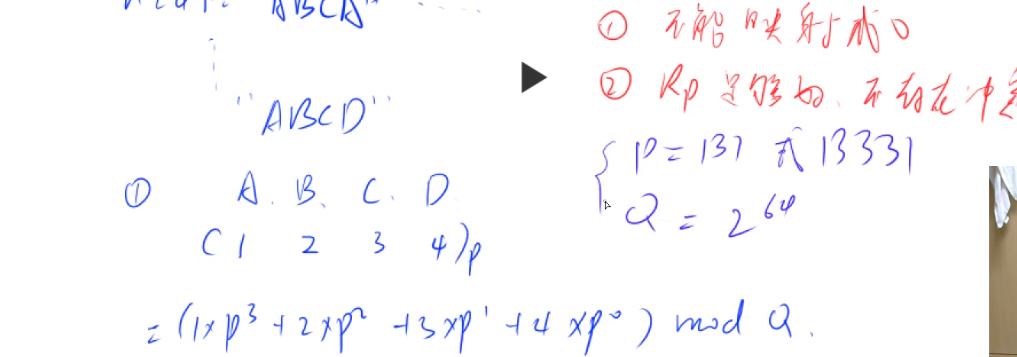 "ABCD"
① A. B. C. D
(1 2 3 4)p
= (1×p³ + 2×p² + 3×p¹ + 4×p⁰) mod Q.
① 不能映射成0
② Rp足够好、不存在冲突
P = 131 或 13331
Q = 2⁶⁴